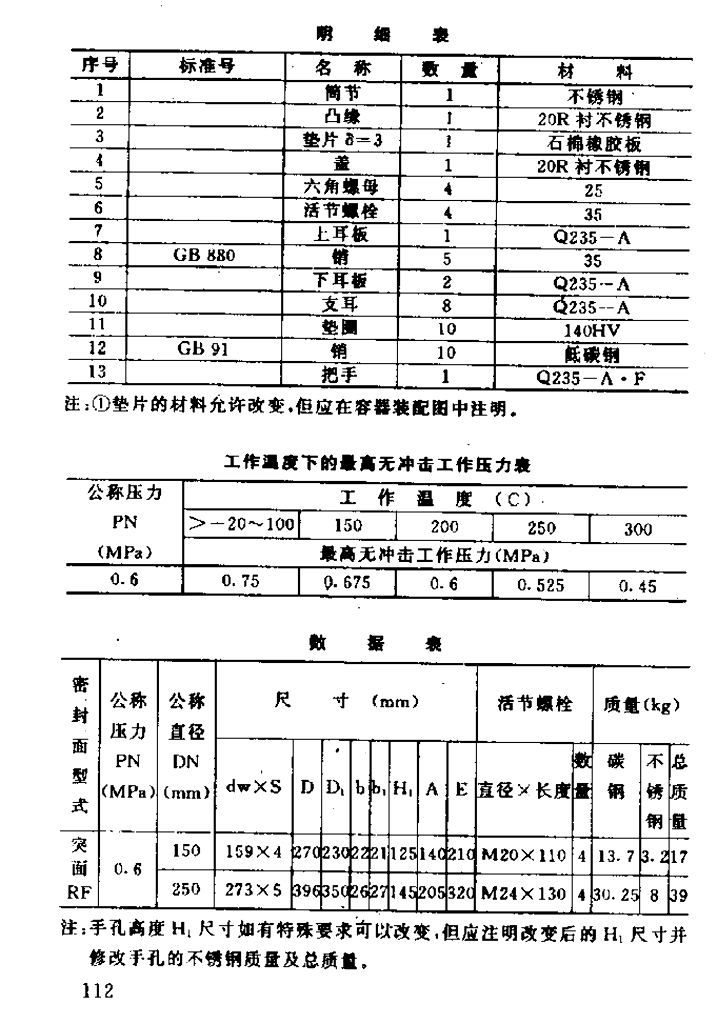 明 细 表
序号 标准号 名 称 数 量 材 料
1 筒节 1 不锈钢
2 凸缘 1 20R 衬不锈钢
3 垫片 δ=3 1 石棉橡胶板
4 盖 1 20R 衬不锈钢
5 六角螺母 4 25
6 活节螺栓 4 35
7 上耳板 1 Q235-A
8 GB 880 销 5 35
9 下耳板 2 Q235-A
10 支耳 8 Q235--A
11 垫圈 10 140HV
12 GB 91 销 10 低碳钢
13 把手 1 Q235-A·F
注:①垫片的材料允许改变,但应在容器装配图中注明。
工作温度下的最高无冲击工作压力表
公称压力 PN (MPa) 工 作 温 度 (C)
>-20~100 150 200 250 300
最高无冲击工作压力(MPa)
0.6 0.75 0.675 0.6 0.525 0.45
数 据 表
密封面型式 公称压力 PN (MPa) 公称直径 DN (mm) 尺 寸 (mm) 活节螺栓 质量(kg)
dw×S D D₁ b b₁ H₁ A E 直径×长度 数量 碳钢 不锈钢 总质量
突面 RF 0.6 150 159×4 270 230 22 21 125 140 210 M20×110 4 13.7 3.2 17
250 273×5 396 350 26 27 145 205 320 M24×130 4 30.25 8 39
注:手孔高度 H₁ 尺寸如有特殊要求可以改变,但应注明改变后的 H₁ 尺寸并
修改手孔的不锈钢质量及总质量。
112